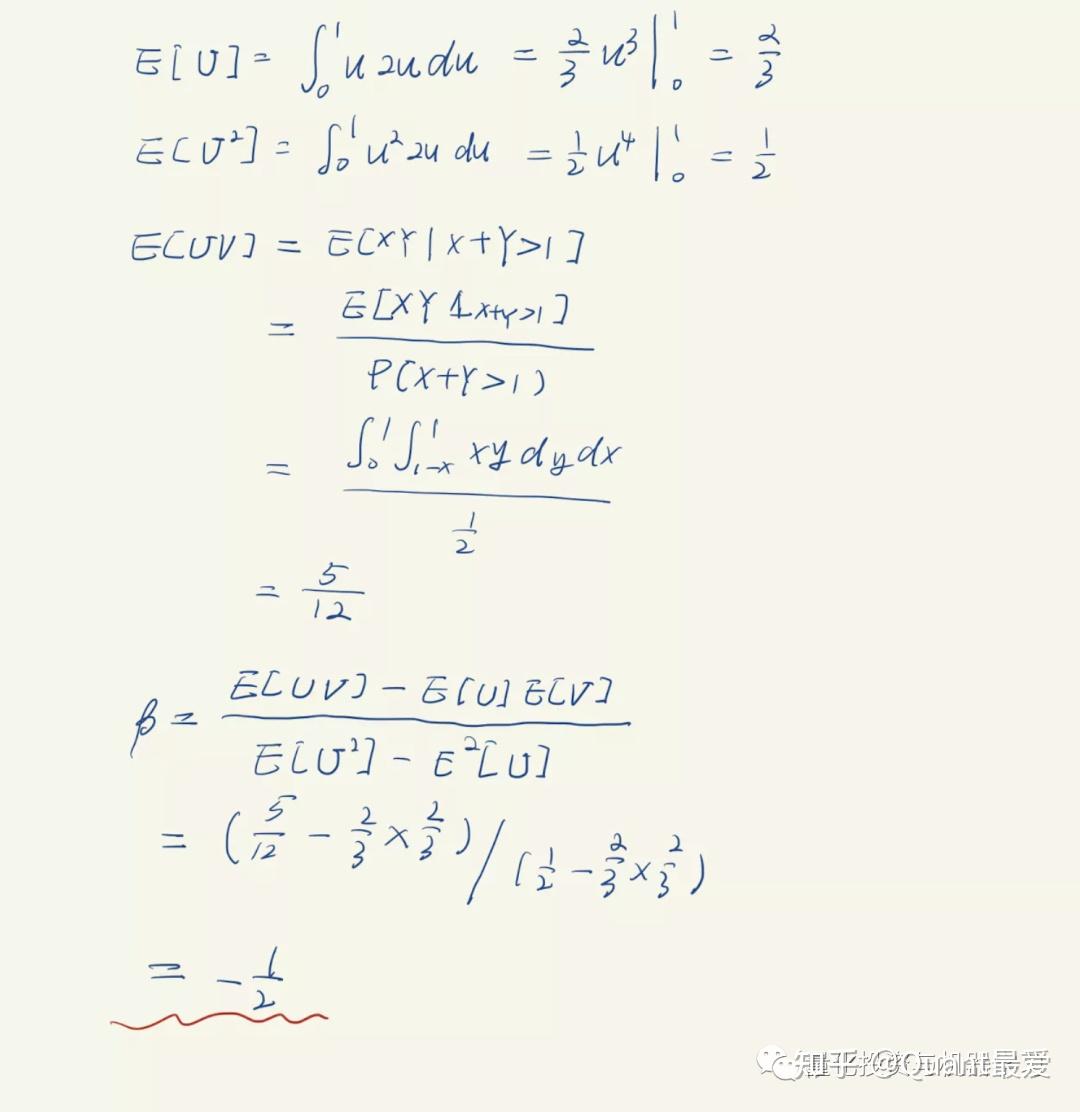 E[U] = ∫₀¹ u 2u du = 2/3 u³ |₀¹ = 2/3
E[U²] = ∫₀¹ u² 2u du = 1/2 u⁴ |₀¹ = 1/2
E[UV] = E[XY | X+Y>1]
= E[XY 1_{X+Y>1}] / P(X+Y>1)
= ∫₀¹ ∫₁₋ₓ¹ xy dy dx / 1/2
= 5/12
β = E[UV] - E[U] E[V] / E[U²] - E²[U]
= (5/12 - 2/3 × 2/3) / (1/2 - 2/3 × 2/3)
= -1/2
知乎 @Quant最爱